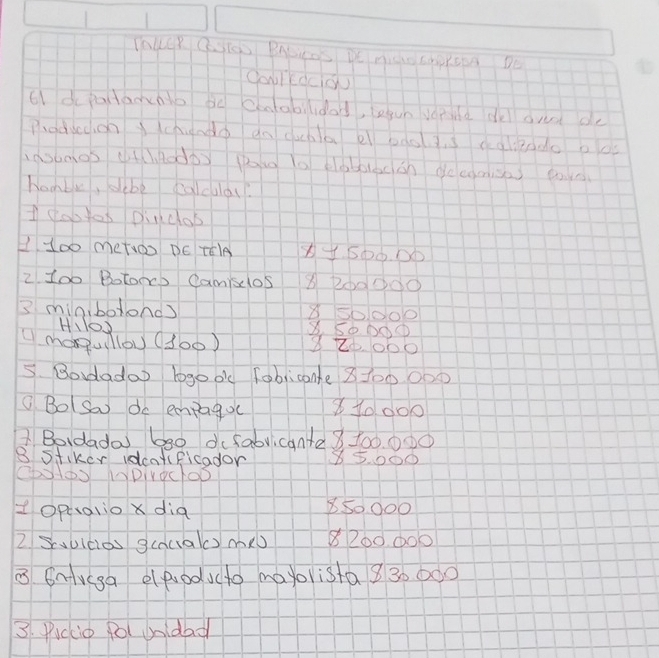 Taller Costos Basicos De microempresa De
Confección
El departamento de Contabilidad, según del area de
Producción y teniendo en cuenta el realizado a los
insumos utilizados para la elaboración de camisas para
hombre, debe calcular:
1 Costos Directos
1. 100 metros DE TELA $ 1500.00
2. 100 Botones Camiselos $ 200000
3 minibotones $ 50.000
Hilos $ 50.000
4 marquillas (100) $ 20.000
5. Bordados logo de fabricante $ 100.000
6 Bolsas de empaque $ 10.000
7 Bordados logo de fabricante $ 100.000
8 Stiker identificador $ 5.000
Costos inDirectos
1 Operario x dia $50.000
2 Servicios generales mes $ 200.000
3 Entrega el producto mayolista $ 30.000
3. Precio Por unidad